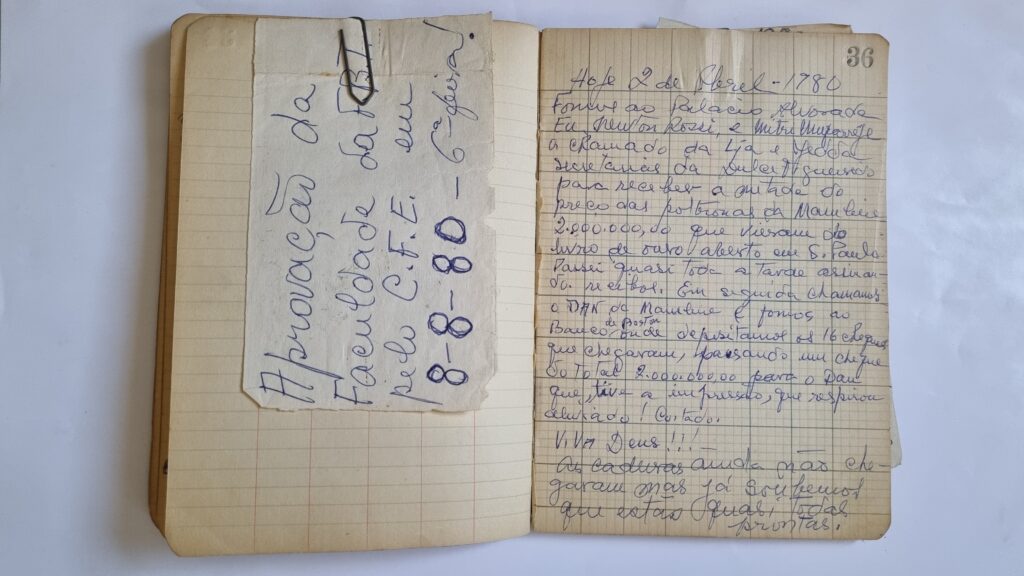 Aprovação da
Faculdade da F.B.T.
pelo C.F.E. em
8-8-80 - 6ª feira!
36
Hoje 2 de Abril - 1980
Fomos ao Palacio Alvorada
Eu Newton Rossi, e
a chamado da Lia e
secretarias da Dulce Figueiredo
para receber a metade do
preço das poltronas da
2.000.000,00 que vieram do
livro de ouro aberto em S. Paulo
Passei quasi toda a tarde assinan-
do recibos. Em seguida chamamos
o DAN da e fomos ao
Banco de Boston onde depositamos os 16 cheques
que chegaram, passando um cheque
do total 2.000.000,00 para o Dan
que, tive a impressão, que respirou
aliviado! Coitado!
Viva Deus!!!
As cadeiras ainda não che-
garam mas já soubemos
que estão quasi todas
prontas.